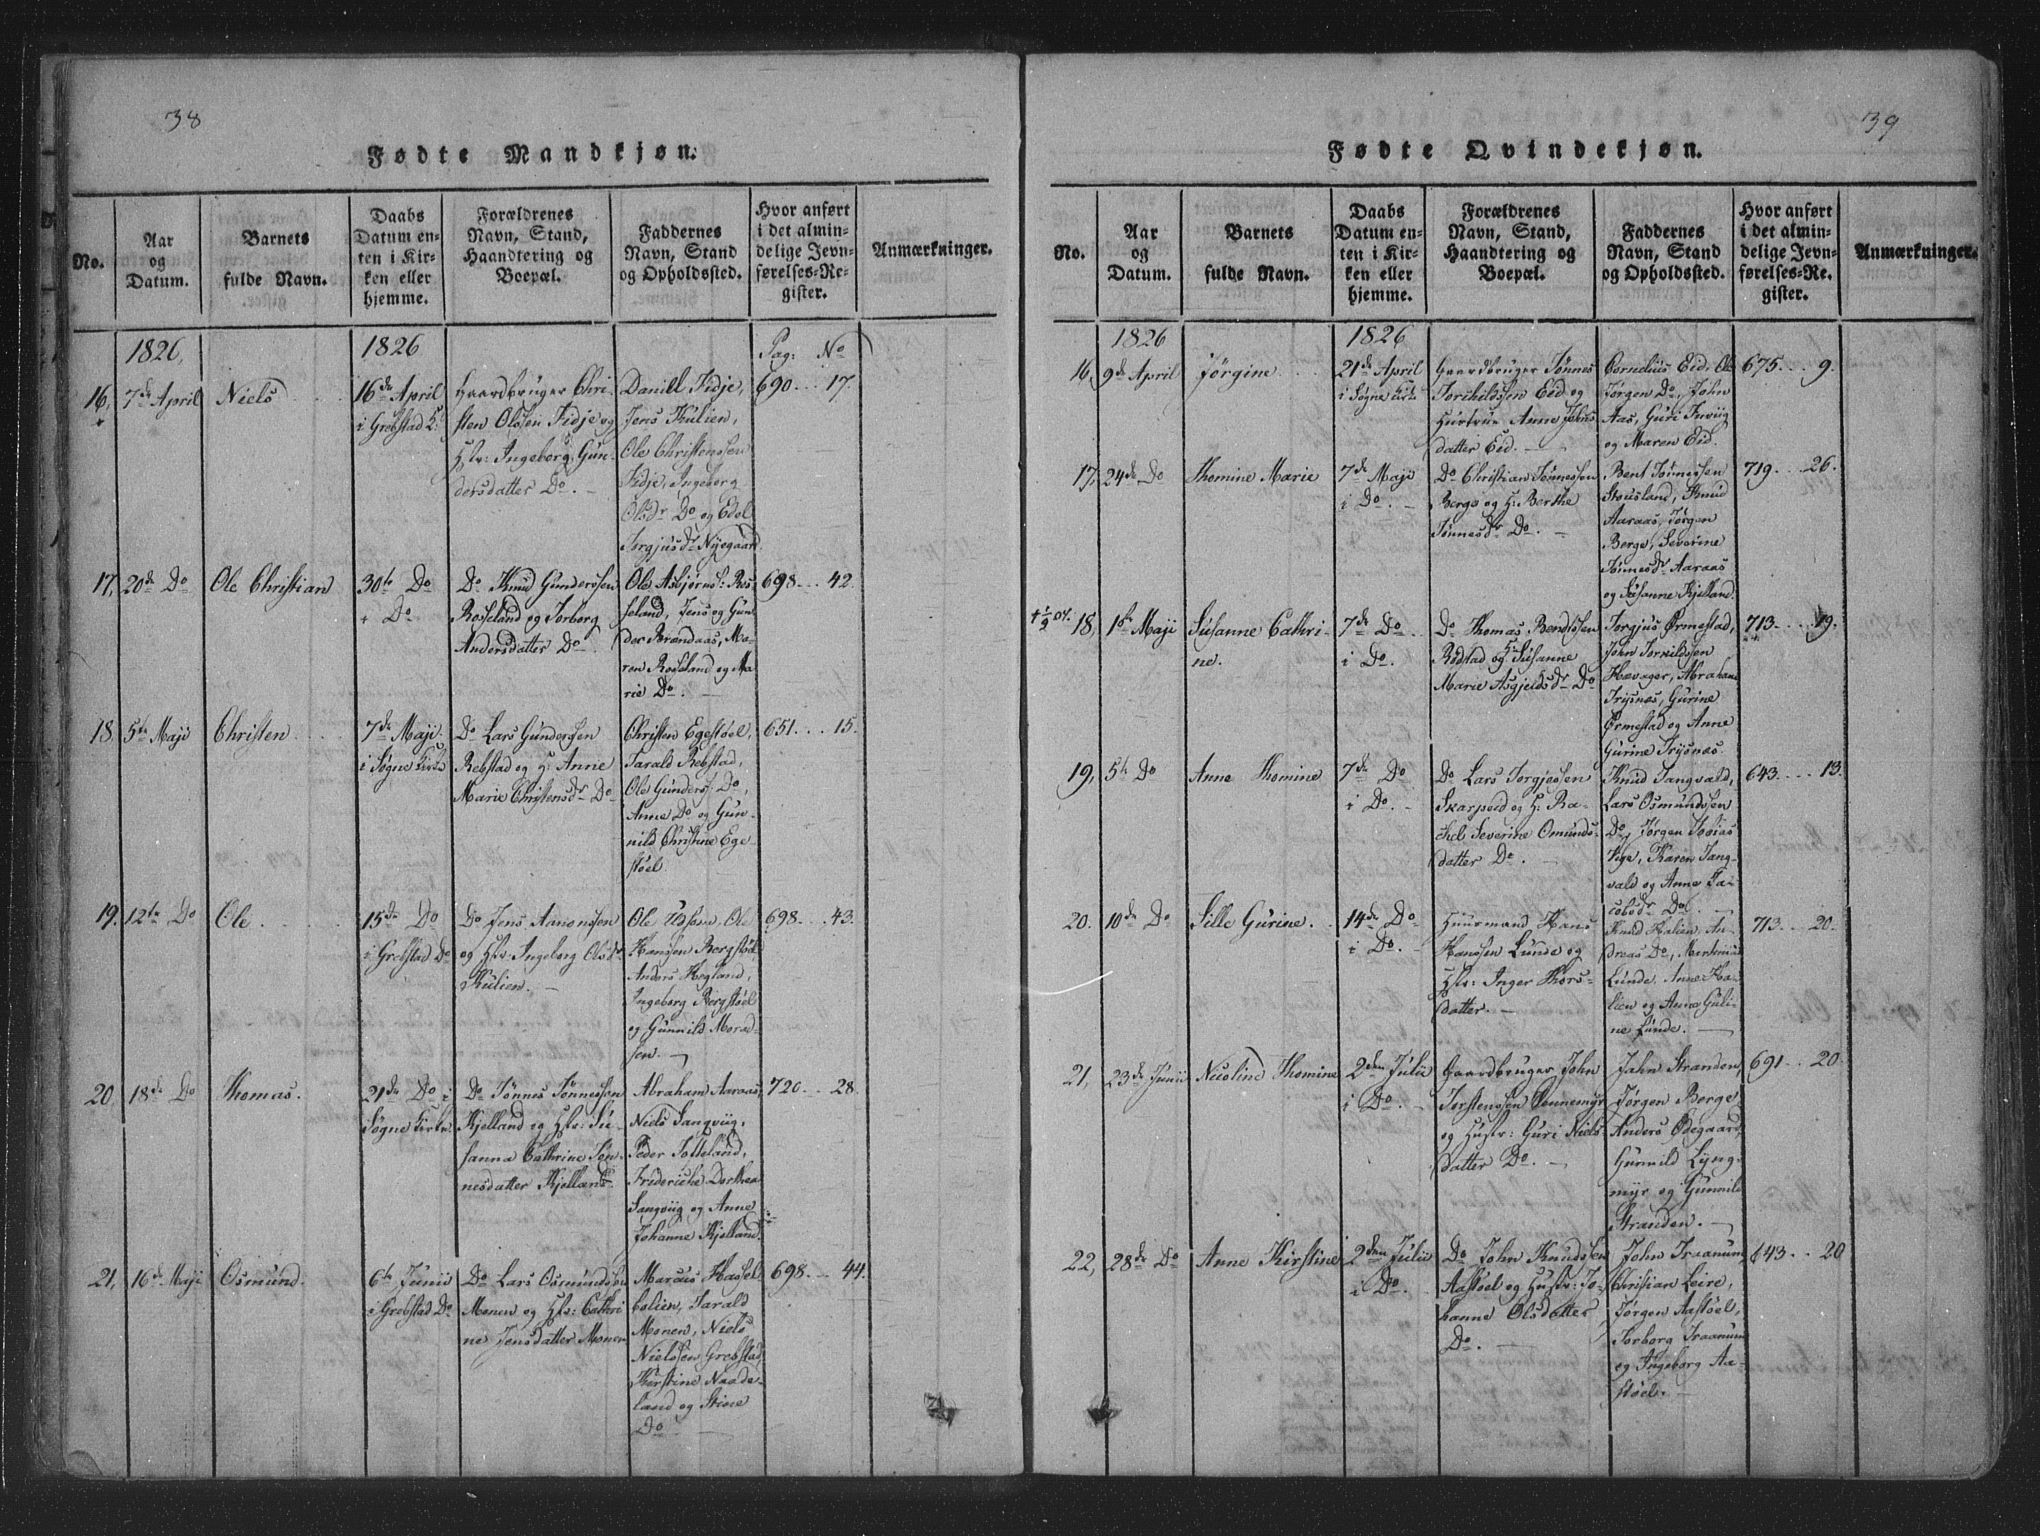 38
Fødte Mandkjøn.
No.
Aar
og
Datum.
Barnets
fulde Navn.
Daabs
Datum en-
ten i Kir-
ken eller
hjemme.
Forældrenes
Navn, Stand,
Haandtering og
Boepæl.
Faddernes
Navn, Stand
og Opholdssted.
Hvor anført
i det almin-
delige Jevn-
førelses-Re-
gister.
Anmærkninger.
1826,
1826
Pag: No
16,
7de April
Niels
16de April
i Grebstad K:
Gaardbruger Chri-
sten Olssen Fidje og
Hstr: Ingeborg Gun-
dersdatter Do. -
Daniel Fidje,
Jens Kulien,
Ole Christenssen
Fidje, Ingeborg
Olsdr Do og Edel
Torgjusdr Nyegaard
690 . . . 17.
17,
20de Do
Ole Christian
30te Do
i Do.
Do Knud Gunderssen
Roseland og Torborg
Andersdatter Do.
Ole Asbjørns: Ros-
seland, Jens og Gun-
der Brandaas, Ma-
ren Roseland og Ma-
rie Do. -
698 . . . 42.
18.
5te Maji
Christen
7de Maji
i Søgne Kirke
Do Lars Gunderssen
Rebstad og H: Anne
Marie Christensdr Do
Christen Egestøel,
Tarald Rebstad,
Ole Gunders: Do,
Anne Do og Gun-
nild Christine Ege-
støel
651 . . . 15.
19.
12te Do
Ole
15de Do
i Grebstad Do
Do Jens Aanonssen
og Hstr: Ingeborg Olsdr
Kulien. -
Ole Olssen, Ole
Hanssen Bergstøel
Anders Hegland,
Ingeborg Bergstøel
og Gunnild
sen. -
698 . . . 43.
20
18de Do
Thomas.
21de Do i
Søgne Kirke
Do Tønnes Tønnessen
Kjelland og Hstr: Su-
sanna Cathrine Tøn-
nesdatter Kjelland
Abraham Aaraas,
Niels Langviig,
Peder Tofteland,
Friderische Dorthea
Langviig og Anne
Johanne Kjelland.
720 . . . 28.
21,
16de Maji
Osmund.
6te Junii
i Grebstad Do
Do Lars Osmundssen
Monen og Hstr: Cathri
ne Jensdatter Monen
Marcus Hassel
bolien, Tarald
Monen, Niels
Nielssen Grebstad
Kirstine Naade-
land og Stine
Do
698 . . . 44.
39
Fødte Qvindekjøn.
No.
Aar
og
Datum.
Barnets
fulde Navn.
Daabs
Datum en-
ten i Kir-
ken eller
hjemme.
Forældrenes
Navn, Stand,
Haandtering og
Boepæl.
Faddernes
Navn, Stand
og Opholdssted.
Hvor anført
i det almin-
delige Jevn-
førelses-Re-
gister.
Anmærkninger.
1826
1826
16,
9de April
Jørgine
21de April
i Søgne Kirke
Gaardbruger Tønnes
Torkildssen Eid og
Hustrue Anne Johns
datter Eid. -
Cornelius Eid, Ole
Jørgen Do, John
Aas, Guri Inviig
og Maren Eid.
675 . . . 9.
17,
24de Do
Thomine Marie
7de Maji
i Do. -
Do Christian Tønnessen
Berge og H: Berthe
Tønnesdr Do. -
Bent Tønnessen
Stousland, Knud
Aaraas, Jørgen
Berge, Severine
Tønnesdr Aaraas
og Susanne Kjelland.
719 . . . 26.
18,
1ste Maji
Susanne Cathri-
ne.
7de Do
i Do. -
Do Thomas Bendtssen
Rødstad og H: Susanne
Marie Asgjeldsdr Do
Torgjus Ørmestad,
John Torkildssen
Hævager, Abraham
Trysnes, Gurine
Ørmestad og Anne
Gurine Trysnes.
713 . . . 19.
19,
5te Do
Anne Thomine
7de Do
i Do. -
Do Lars Torgjessen
Skarpeid og H: Ra-
chel Severine Omunds-
datter Do. -
Knud Tangvald,
Lars Osmundssen
Do, Jørgen Tobias
Vige, Karen Tang-
vald og Anne Ja-
cobsdr Do. -
643 . . . 13.
20.
10de Do
Sille Gurine.
14de Do
i Do. -
Huusmand Hans
Hanssen Lunde og
Hstr: Inger Thors-
datter. -
Knud Halien, An-
dreas Do, Martinius
Lunde, Anne Ha-
lien og Anna Guli-
ne Lunde. -
713 . . . 20.
21,
23de Junii
Nicoline Thomine
2den Julii
i Do. -
Gaardbruger John
Torstenssen Rennemyr
og Hustr: Guri Niels-
datter Do. -
John Stranden,
Jørgen Berge,
Anders Ødegaard,
Gunnild Lyng-
myr og Gunnild
Stranden. -
691 . . . 20.
22,
28de Do
Anne Kirstine
2den Julii
i Do. -
Do John Knudssen
Aastøel og Hustr: Jo-
hanne Olsdatter
Do. -
John Traanum
Christian Leire,
Jørgen Aastøel,
Torborg Traanum
og Ingeborg Aa-
støel. -
643 . . . 20